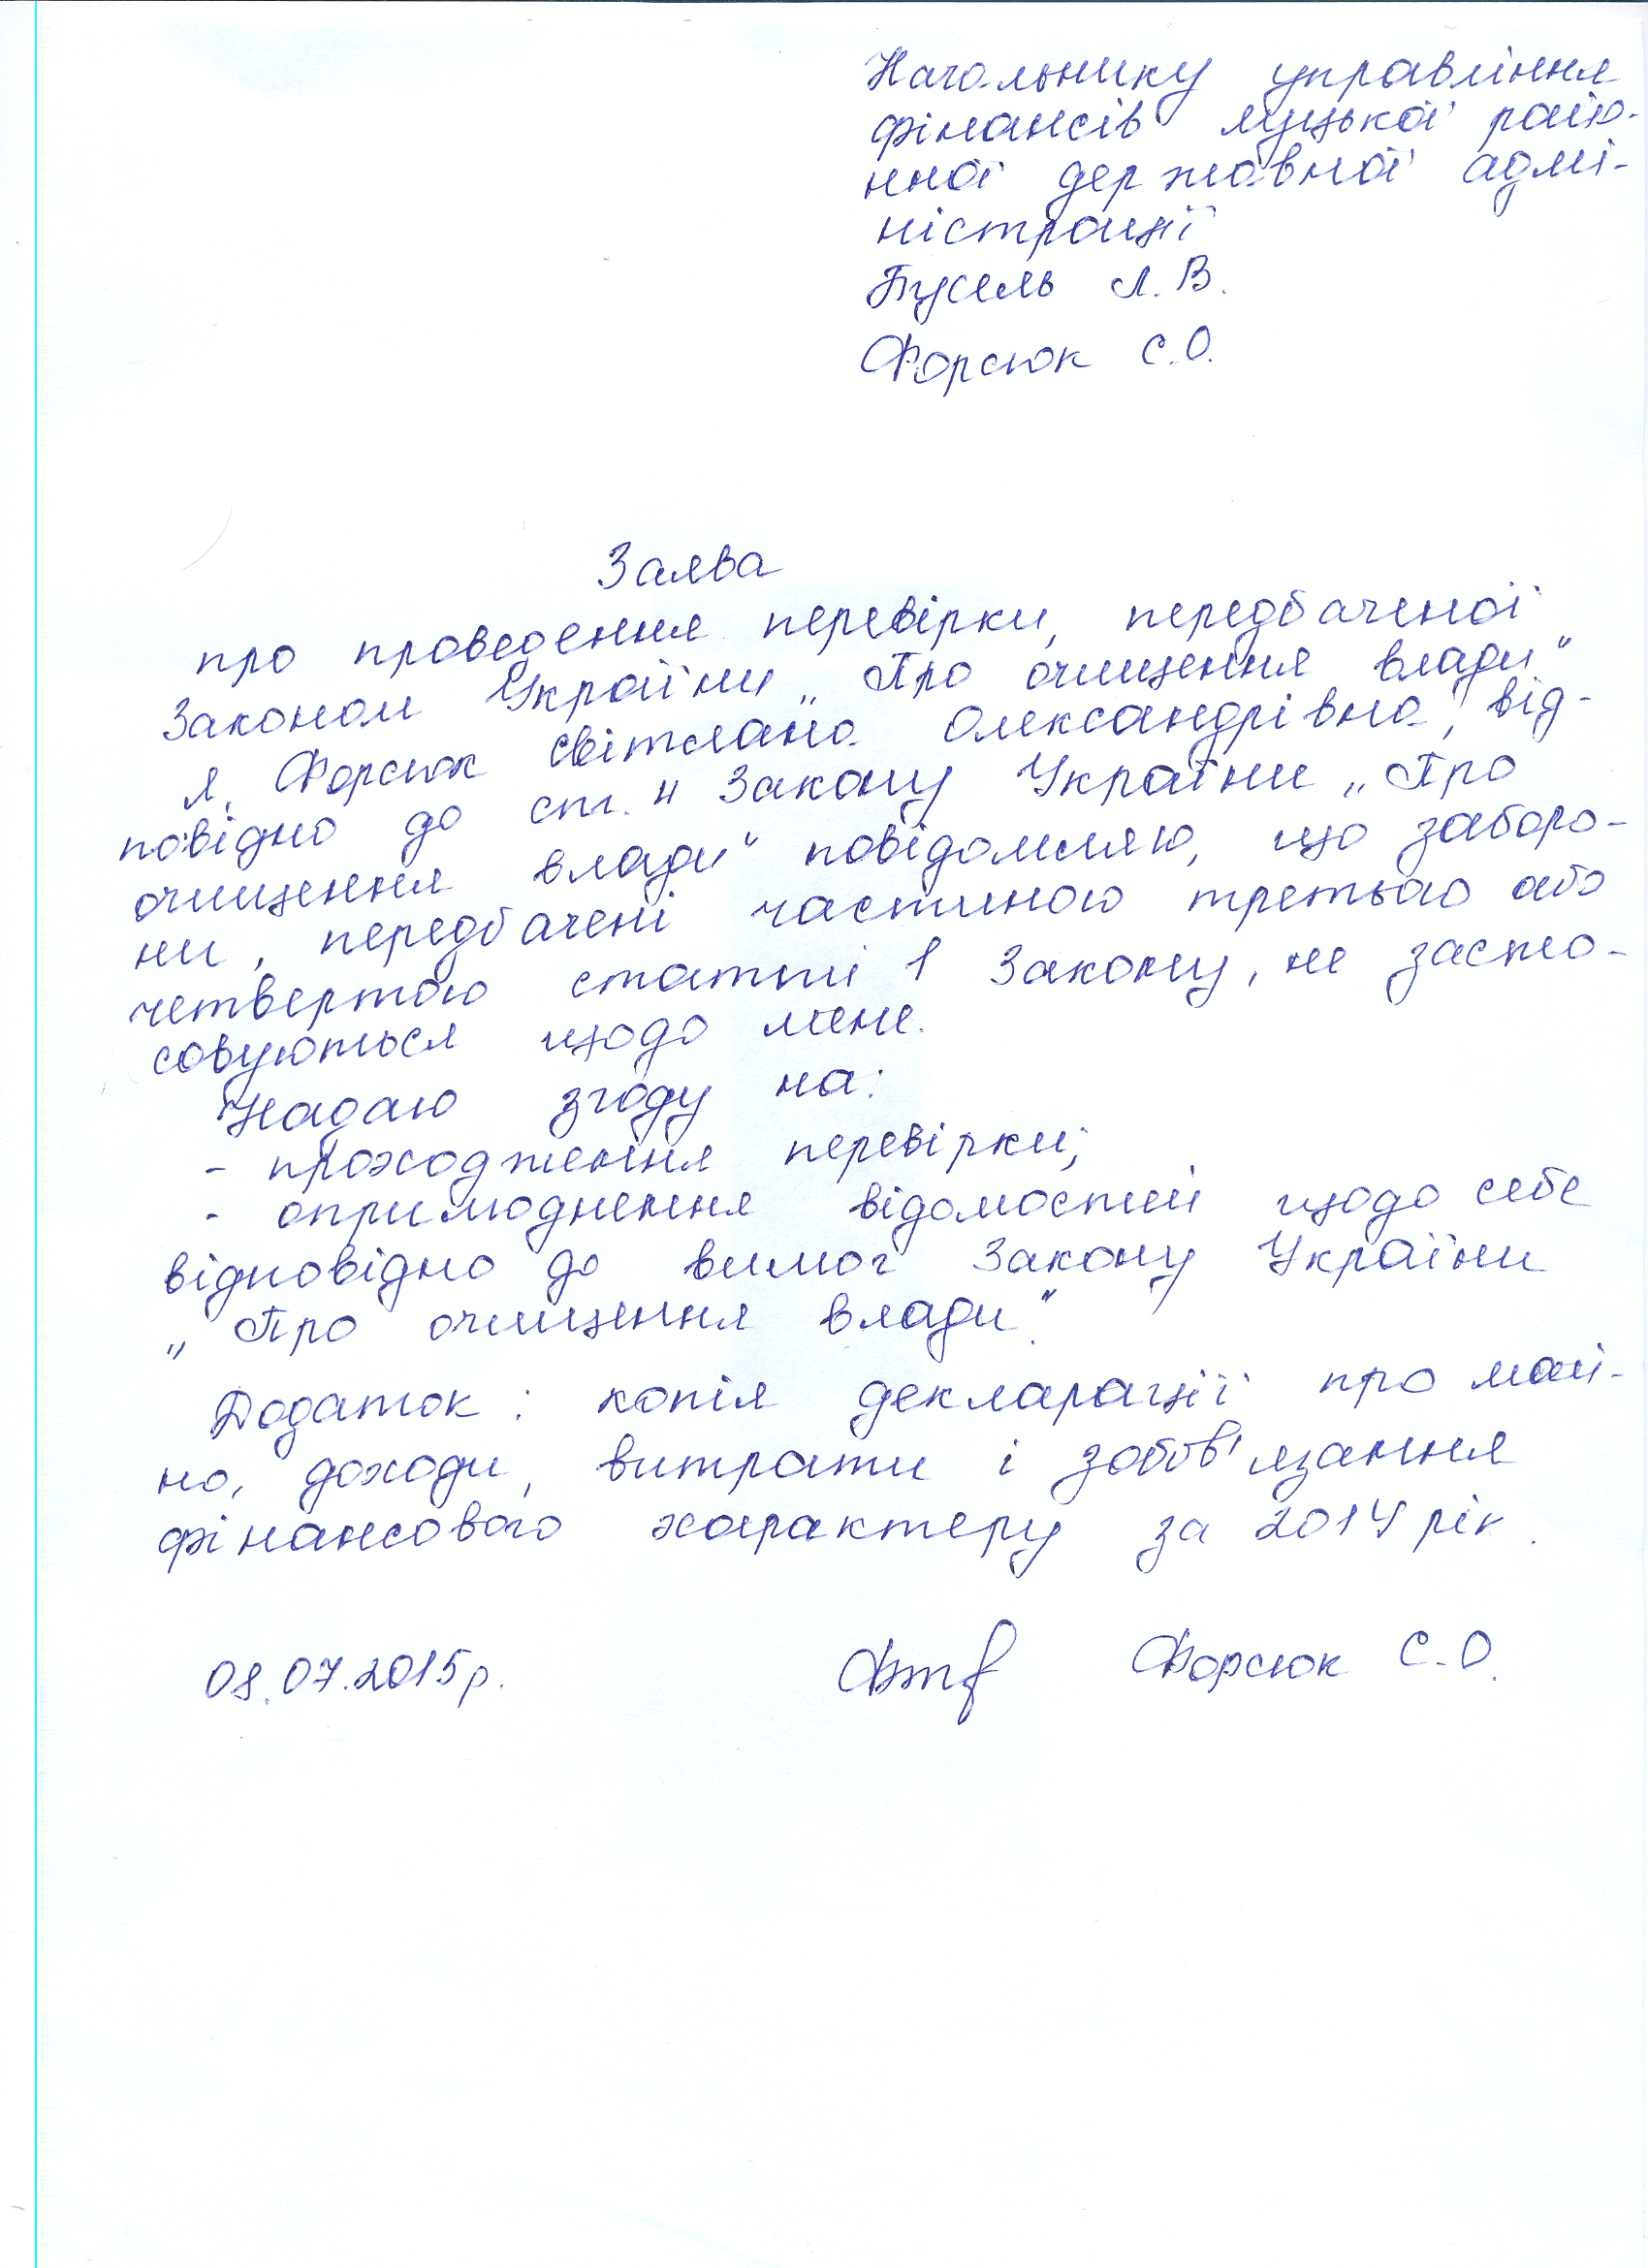 Начальнику управління
фінансів Луцької район-
нної державної адмі-
ністрації
Бусель Л.В.
Форсюк С.О.
Заява
про проведення перевірки, передбаченої
Законом України „Про очищення влади"
Я, Форсюк Світлана Олександрівна, від-
повідно до ст. 4 Закону України „Про
очищення влади" повідомляю, що заборо-
ни, передбачені частиною третьою або
четвертою статті 1 Закону, не засто-
совуються щодо мене.
Надаю згоду на:
- проходження перевірки;
- оприлюднення відомостей щодо себе
відповідно до вимог Закону України
„Про очищення влади".
Додаток: копія декларації про май-
но, доходи, витрати і зобов'язання
фінансового характеру за 2014 рік.
08.07.2015р. Форсюк С.О.